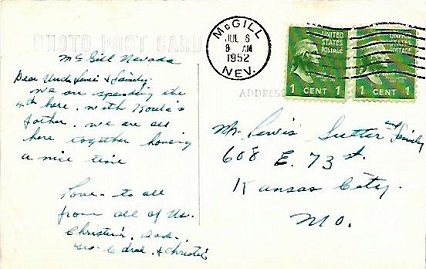 PHOTO POST CARD
McGill Nevada
Dear Uncle Lewis & Family
We are spending the
4th here, with
father, we are all
here together having
a nice time
Love to all
from all of us.
Christie, Dad,
Geo. & Christie
McGILL
JUL 6
8 AM
1952
NEV.
UNITED STATES
POSTAGE
1 CENT 1
UNITED STATES
POSTAGE
1 CENT 1
ADDRESS
Mr. Lewis Sutter and Family
608 E. 73 st.
Kansas City.
MO.